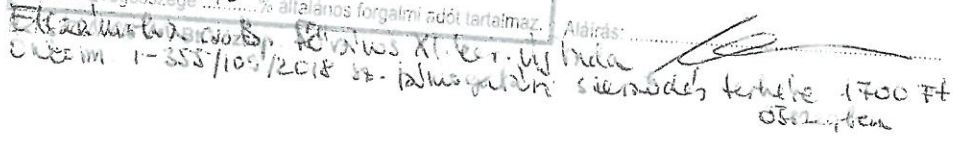 % általános forgalmi adót tartalmaz. Aláírás:
Elszámolva Főváros XI. ker. Új Buda
1-355/109/2018 sz. támogatási szerződés terhére 1700 Ft
összegben